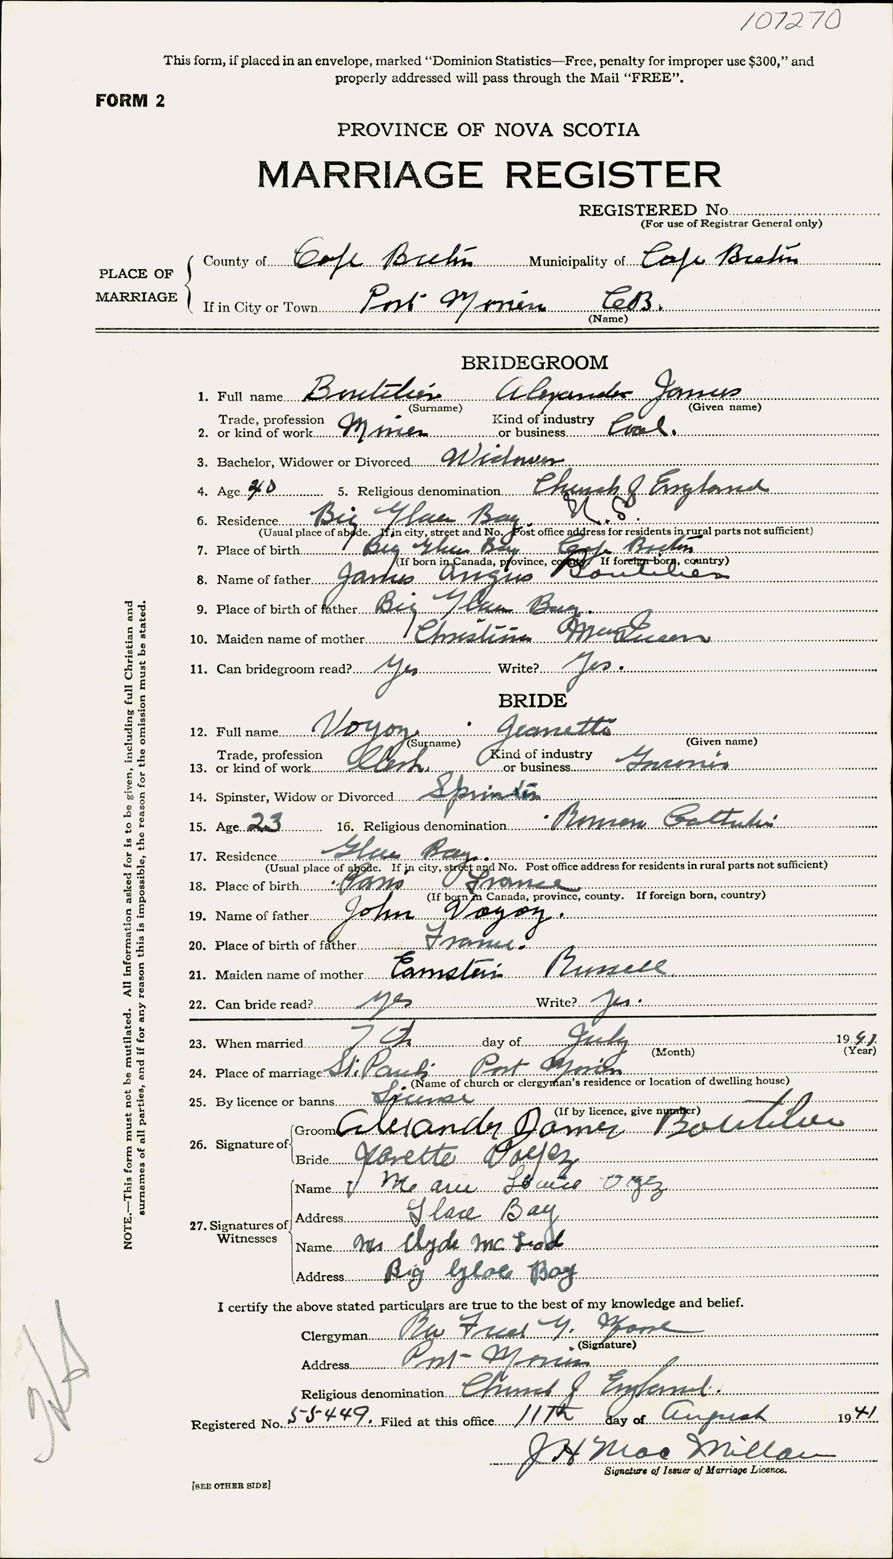 107270
This form, if placed in an envelope, marked "Dominion Statistics—Free, penalty for improper use $300," and
properly addressed will pass through the Mail "FREE".
FORM 2
PROVINCE OF NOVA SCOTIA
MARRIAGE REGISTER
REGISTERED No.
(For use of Registrar General only)
PLACE OF MARRIAGE
County of Cape Breton Municipality of Cape Breton
If in City or Town Port Morien C.B.
(Name)
BRIDEGROOM
1. Full name Boutilier Alexander James
(Surname) (Given name)
2. Trade, profession or kind of work Miner Kind of industry or business Coal.
3. Bachelor, Widower or Divorced Widower
4. Age 40 5. Religious denomination Church of England
6. Residence Big Glace Bay, N.S.
(Usual place of abode. If in city, street and No. Post office address for residents in rural parts not sufficient)
7. Place of birth Big Glace Bay Cape Breton
(If born in Canada, province, county. If foreign born, country)
8. Name of father James Angus Boutilier
9. Place of birth of father Big Glace Bay.
10. Maiden name of mother Christina
11. Can bridegroom read? Yes Write? Yes.
BRIDE
12. Full name Voyoy Jeanette
(Surname) (Given name)
13. Trade, profession or kind of work Clerk. Kind of industry or business
14. Spinster, Widow or Divorced Spinster
15. Age 23 16. Religious denomination Roman Catholic
17. Residence Glace Bay.
(Usual place of abode. If in city, street and No. Post office address for residents in rural parts not sufficient)
18. Place of birth Paris France
(If born in Canada, province, county. If foreign born, country)
19. Name of father John Voyoy.
20. Place of birth of father France.
21. Maiden name of mother Russell
22. Can bride read? Yes Write? Yes.
23. When married 7th day of July 1941
(Month) (Year)
24. Place of marriage St. Paul's Port Morien
(Name of church or clergyman's residence or location of dwelling house)
25. By licence or banns License
(If by licence, give number)
26. Signature of
Groom Alexander James Boutilier
Bride
27. Signatures of Witnesses
Name
Address Glace Bay
Name Mrs Clyde McLeod
Address Big Glace Bay
I certify the above stated particulars are true to the best of my knowledge and belief.
Clergyman Rev Fred Y. Moore
(Signature)
Address Port Morien
Religious denomination Church of England.
Registered No. 55449. Filed at this office 11th day of August 1941
J H MacMillan
Signature of Issuer of Marriage Licence.
[SEE OTHER SIDE]
NOTE.—This form must not be mutilated. All information asked for is to be given, including full Christian and
surnames of all parties, and if for any reason this is impossible, the reason for the omission must be stated.